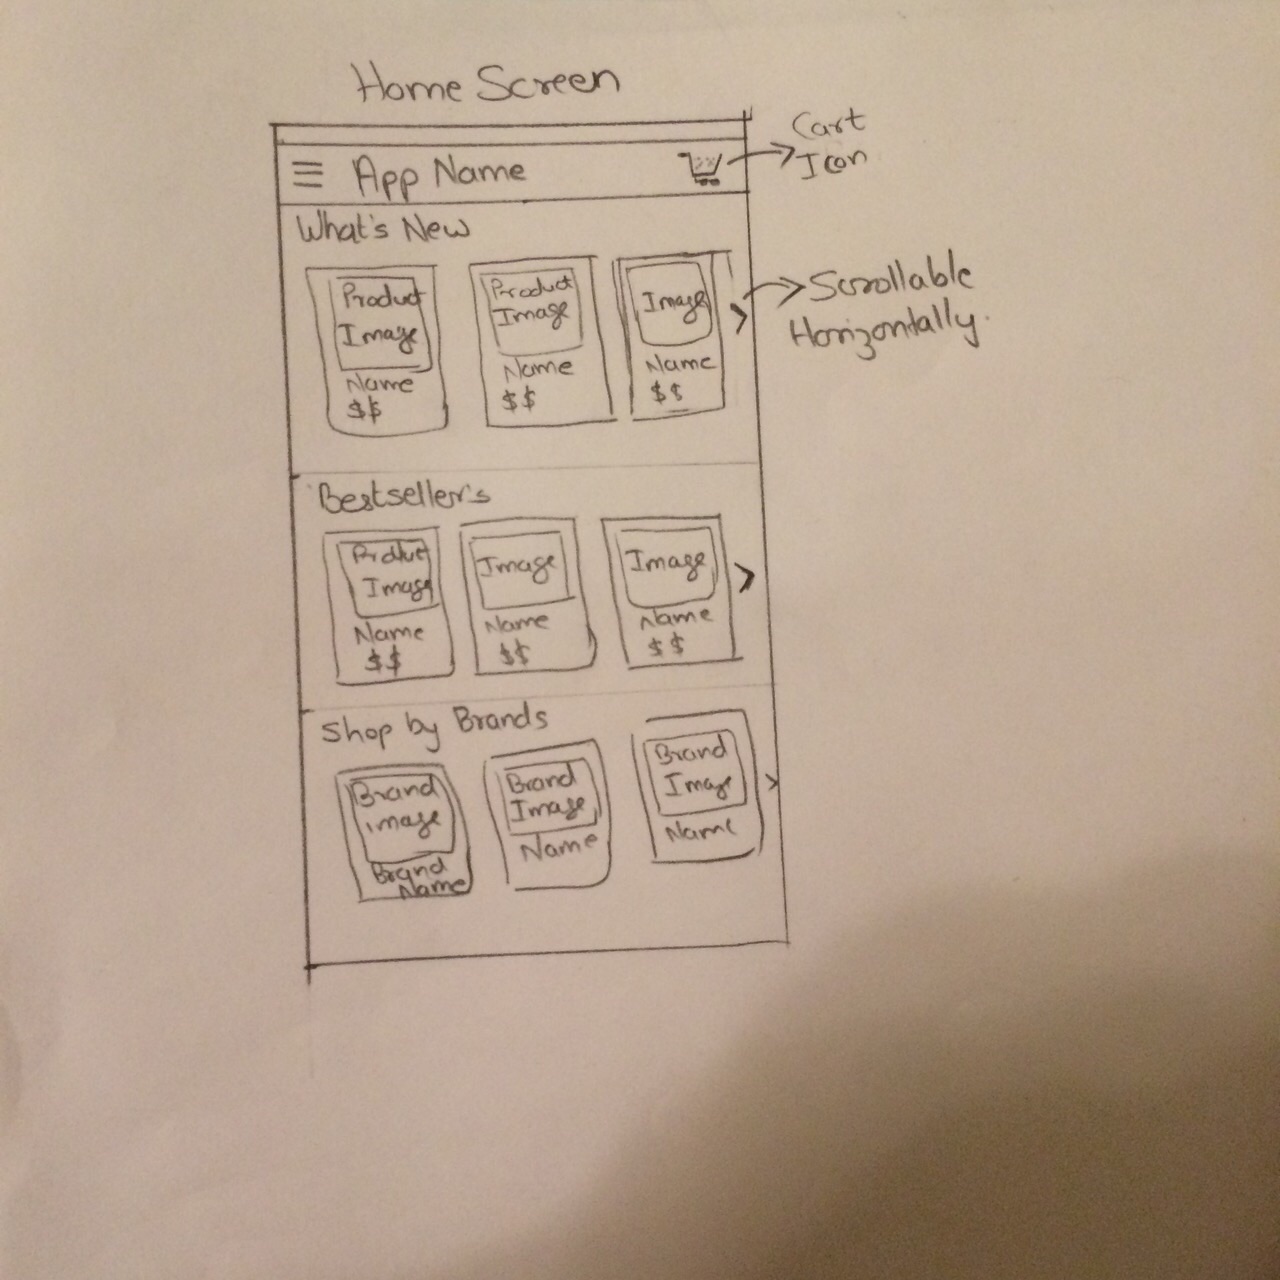 Home Screen
App Name
Cart
Icon
What's New
Product
Image
Name
$$
Product
Image
Name
$$
Image
Name
$$
Scrollable
Horizontally.
Bestseller's
Image
Name
$$
Image
Name
$$
Image
Name
$$
Shop by Brands
Brand
image
Brand
Name
Brand
Image
Name
Brand
Image
Name